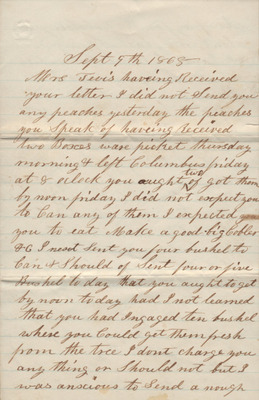 Sept 9th 1868
Mrs Tevis having Received
your letter I did not Send you
any peaches yesterday the peaches
you Speak of having received
two boxes ware picket thursday
morning & left Columbus friday
at 8 oclock you aught to of got them
by noon friday I did not expect you
to Can any of them I expected
you to eat Make a good big Cobler
&C I Sent you four bushel to
Can & Should of Sent four or five
Bushel to day that you aught to get
by noon to day had I not learned
that you had Ingaged ten bushel
where you Could get them fresh
from the tree I dont charge you
any thing or Should not but I
was anscious to Send a nough